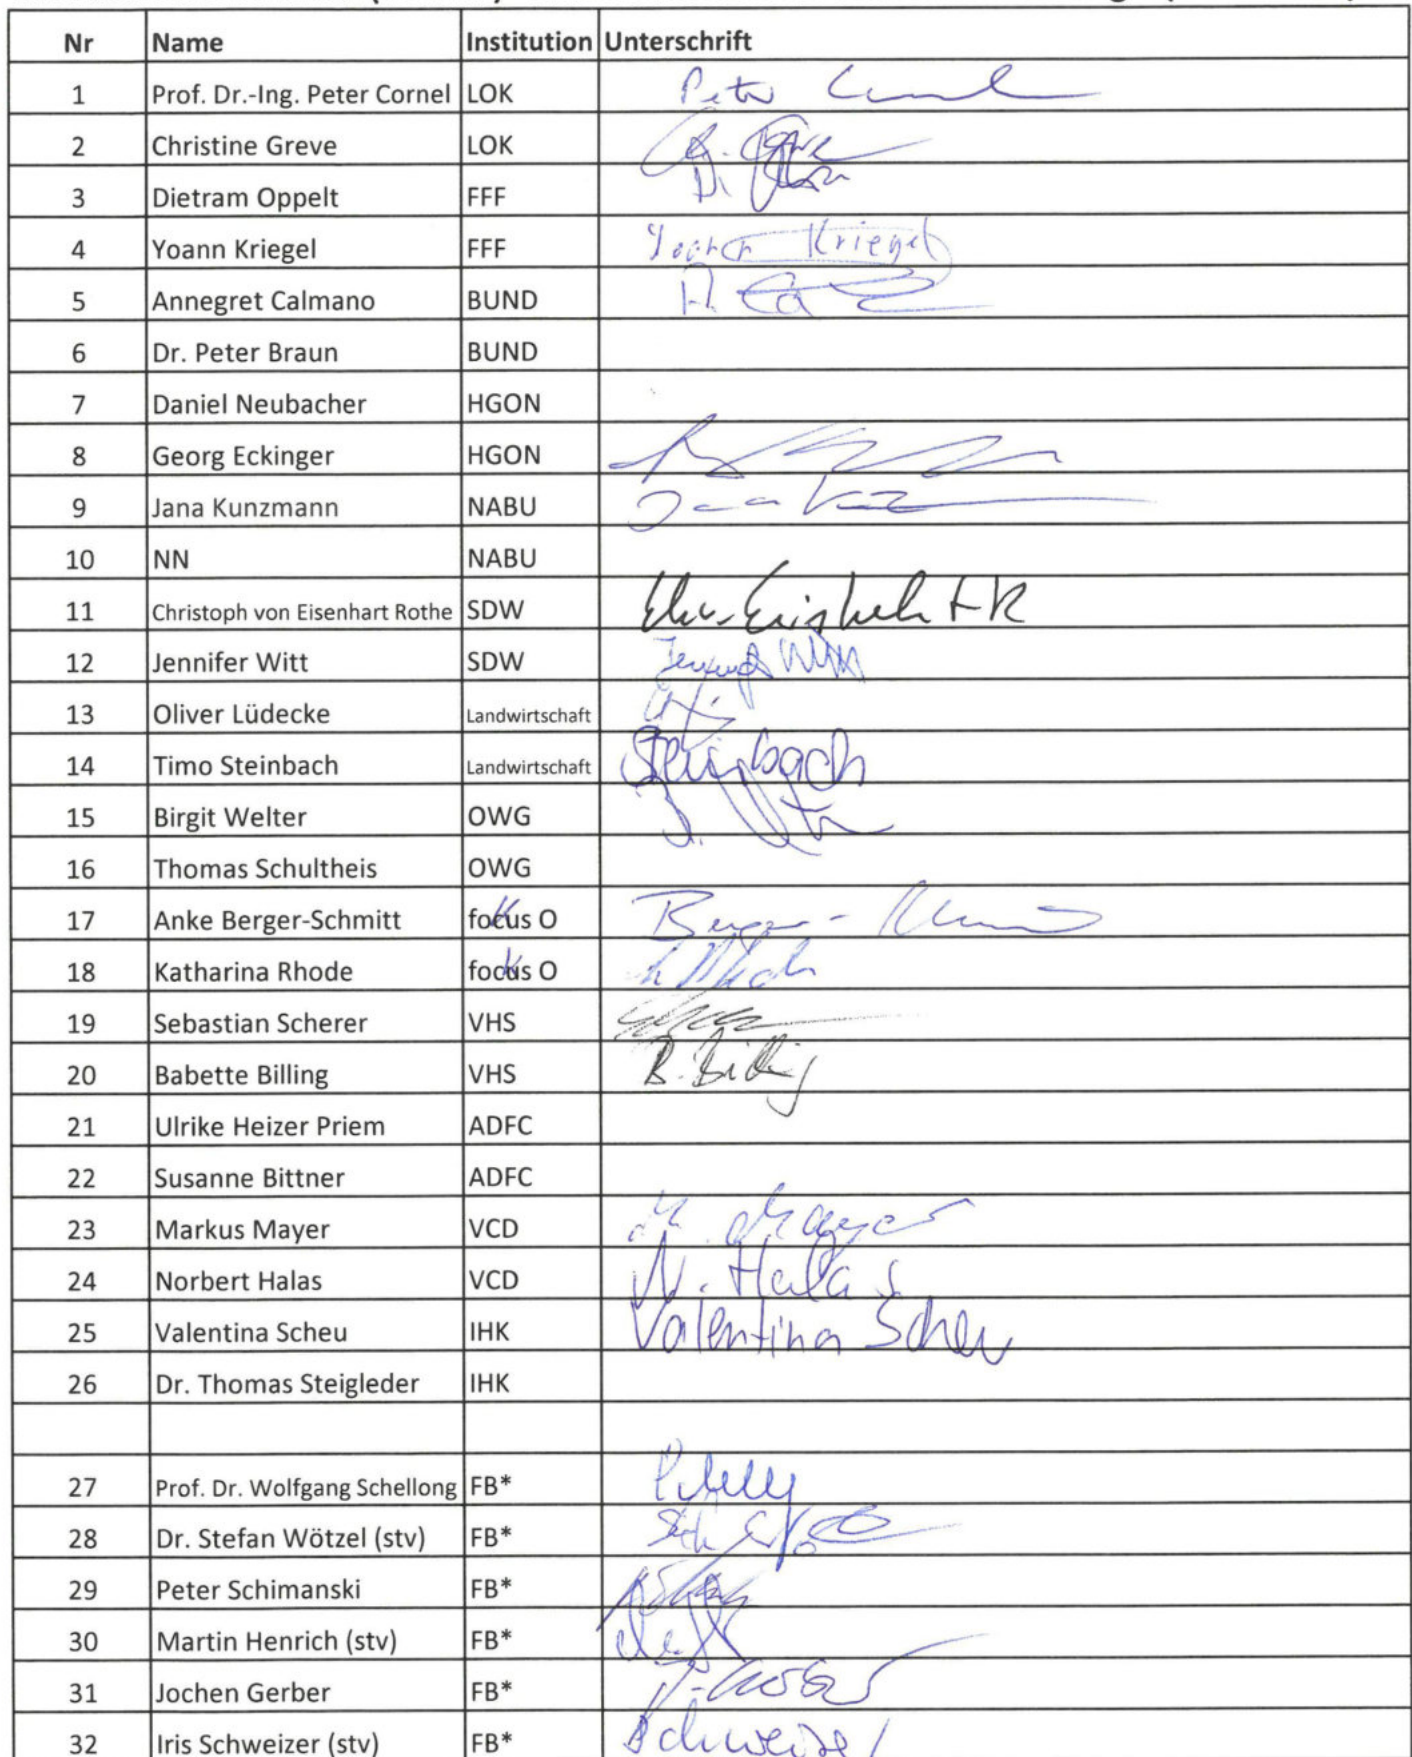 Nr Name Institution Unterschrift
1 Prof. Dr.-Ing. Peter Cornel LOK Peter
2 Christine Greve LOK
3 Dietram Oppelt FFF
4 Yoann Kriegel FFF Yoann Kriegel
5 Annegret Calmano BUND
6 Dr. Peter Braun BUND
7 Daniel Neubacher HGON
8 Georg Eckinger HGON
9 Jana Kunzmann NABU
10 NN NABU
11 Christoph von Eisenhart Rothe SDW
12 Jennifer Witt SDW
13 Oliver Lüdecke Landwirtschaft
14 Timo Steinbach Landwirtschaft Steinbach
15 Birgit Welter OWG
16 Thomas Schultheis OWG
17 Anke Berger-Schmitt fokus O
18 Katharina Rhode fokus O
19 Sebastian Scherer VHS
20 Babette Billing VHS B. Billing
21 Ulrike Heizer Priem ADFC
22 Susanne Bittner ADFC
23 Markus Mayer VCD M. Mayer
24 Norbert Halas VCD N. Halas
25 Valentina Scheu IHK Valentina Scheu
26 Dr. Thomas Steigleder IHK
27 Prof. Dr. Wolfgang Schellong FB*
28 Dr. Stefan Wötzel (stv) FB*
29 Peter Schimanski FB*
30 Martin Henrich (stv) FB*
31 Jochen Gerber FB*
32 Iris Schweizer (stv) FB* Schweizer